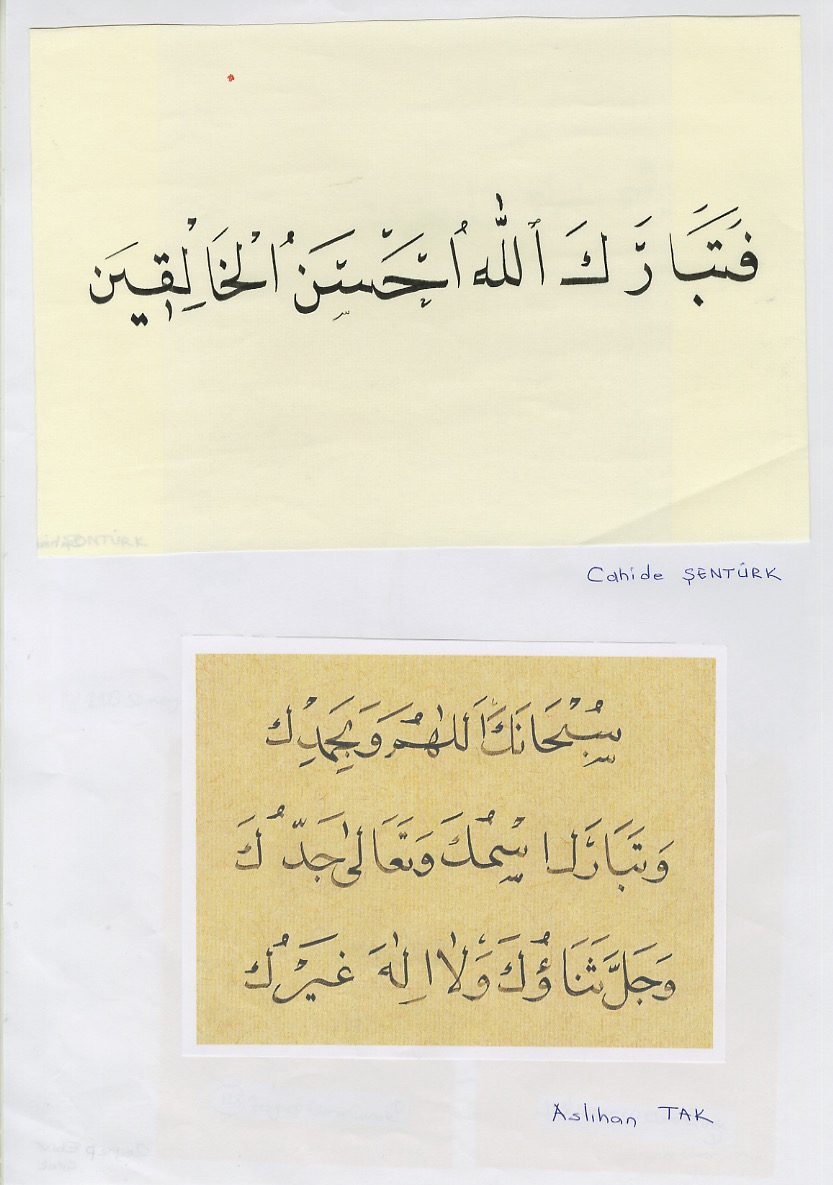 فَتَبَارَكَ ٱللّٰهُ اَحْسَنُ الْخَالِقِينَ
Cahide ŞENTÜRK
سُبْحَانَكَ اَللٰهُمَّ وَبِحَمْدِكَ
وَتَبَارَكَ اسْمُكَ وَتَعَالٰى جَدُّكَ
وَجَلَّ ثَنَاؤُكَ وَلٰا اِلٰهَ غَيْرُكَ
Aslıhan TAK